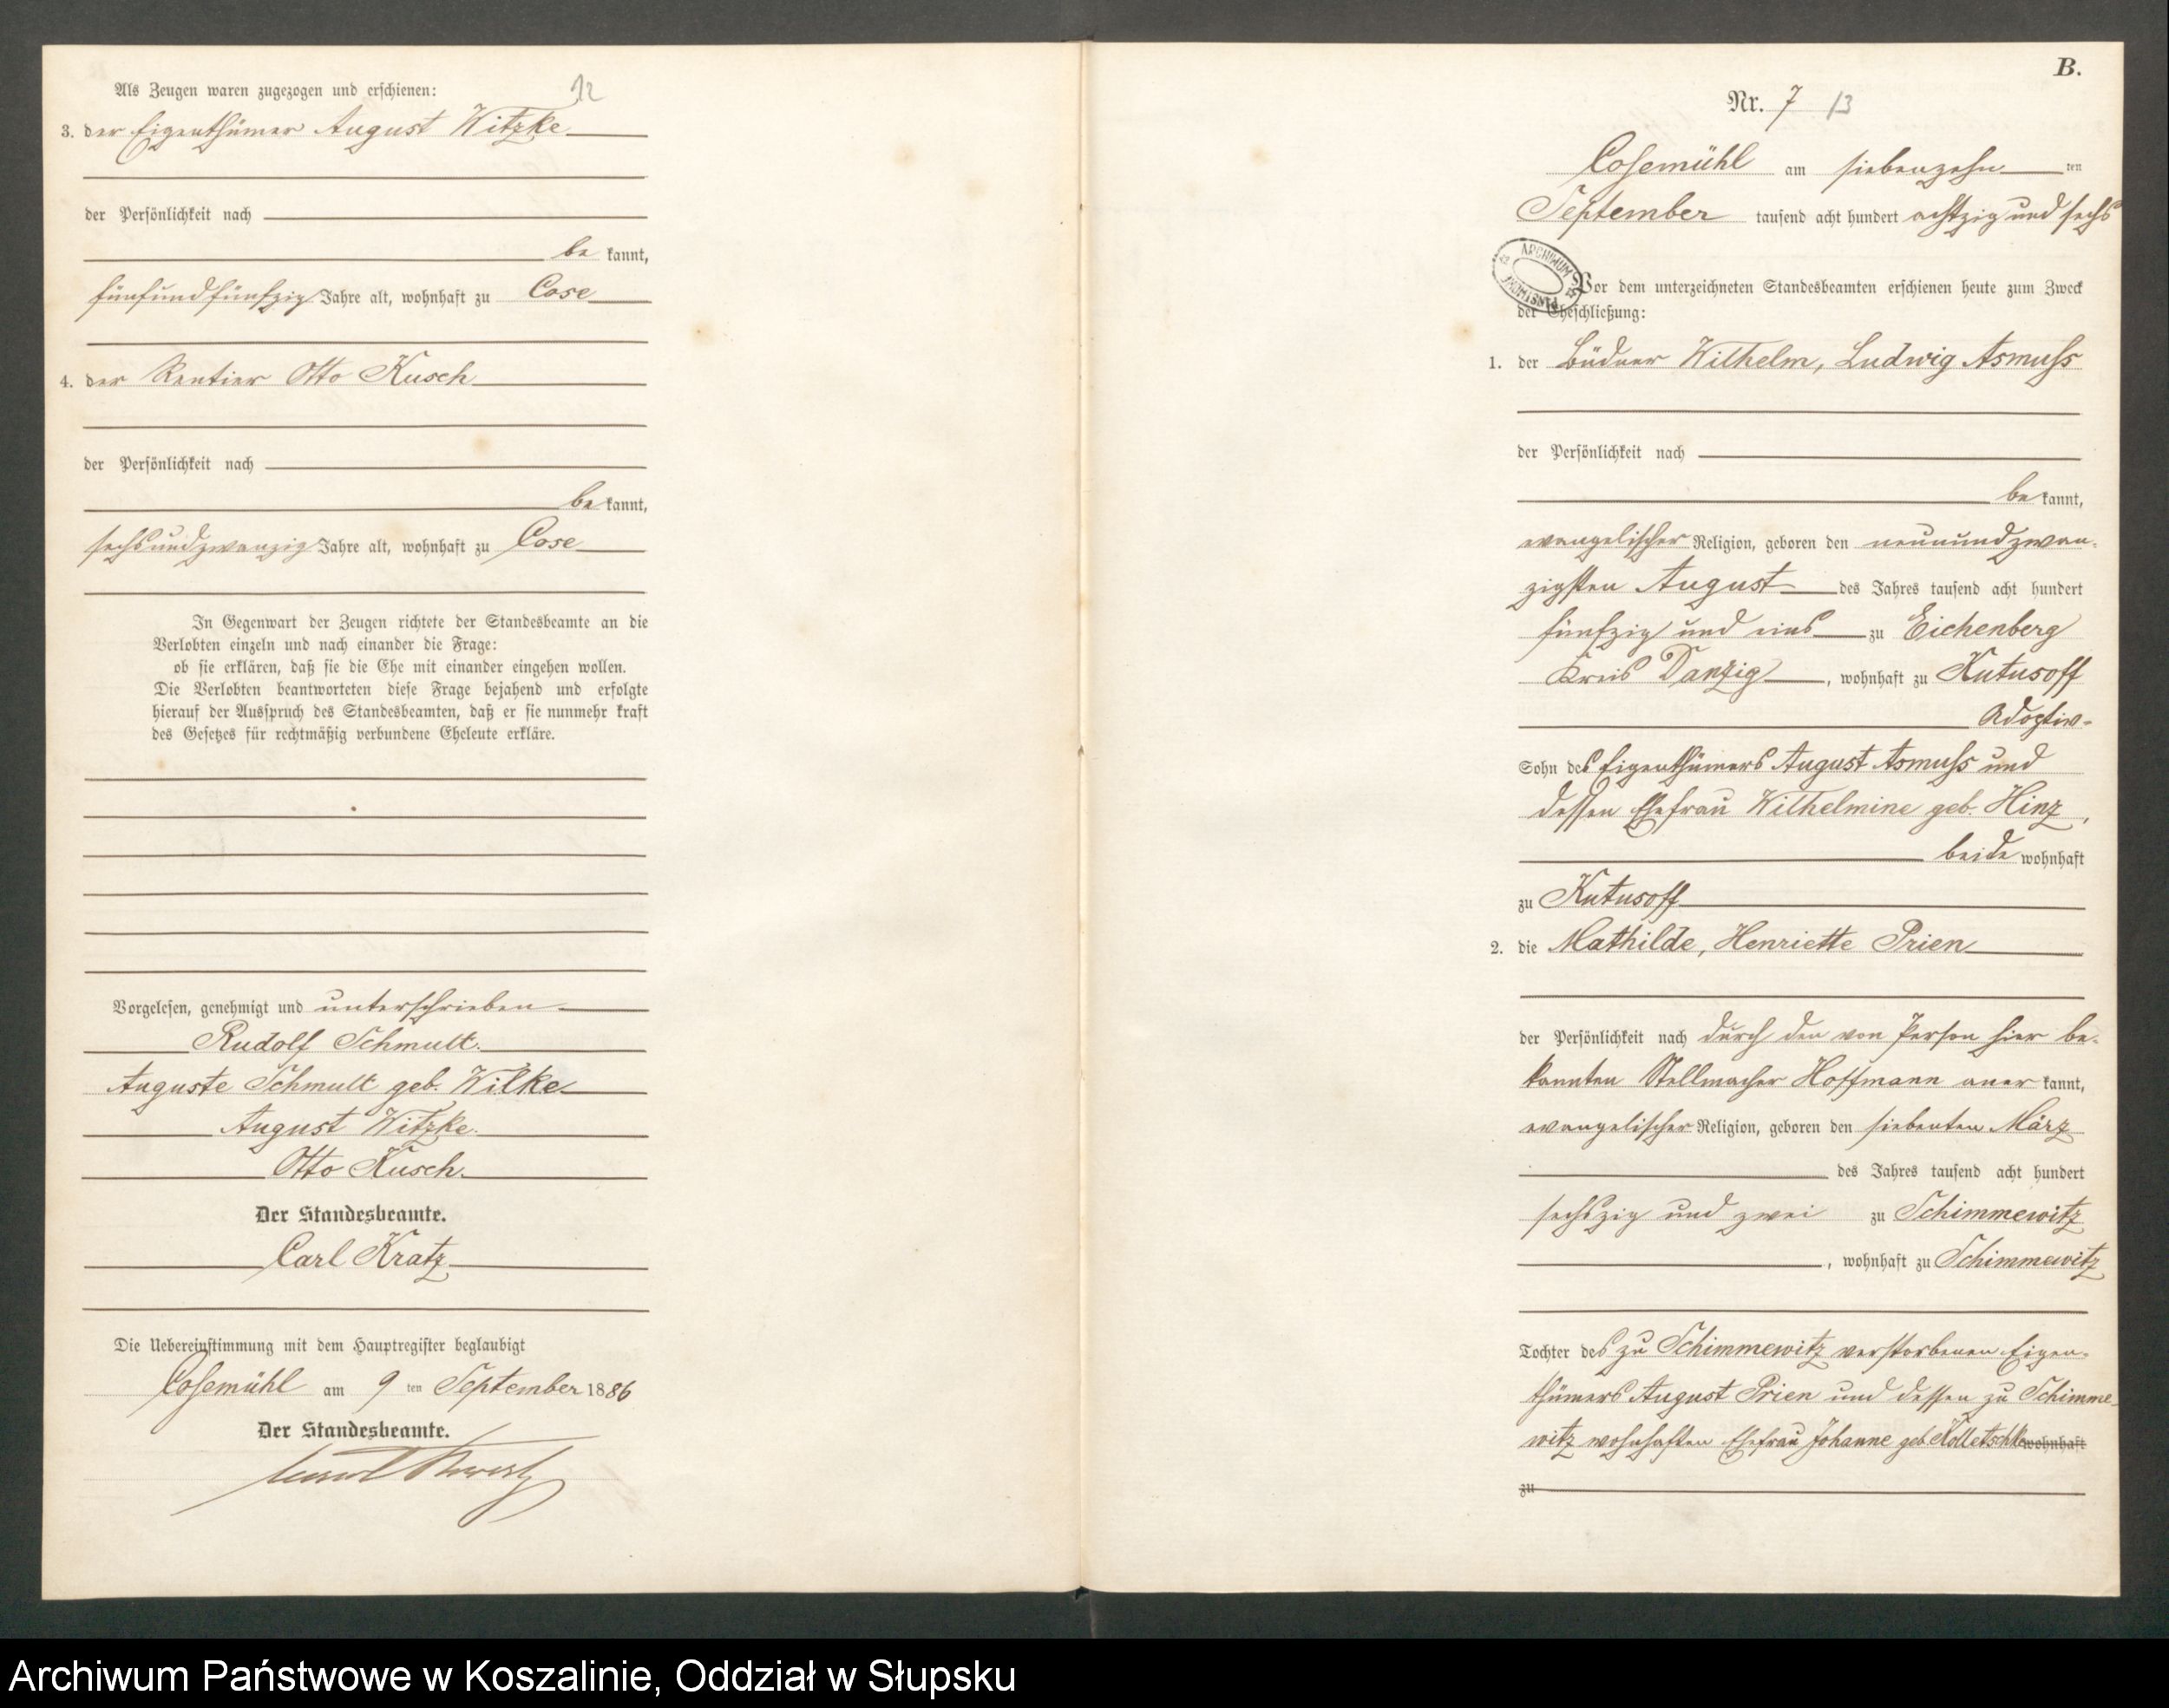 Als Zeugen waren zugezogen und erschienen:
12
3. der Eigenthümer August Witzke
der Persönlichkeit nach
be kannt,
fünfundfünfzig Jahre alt, wohnhaft zu Cose
4. der Rentier Otto Kusch
der Persönlichkeit nach
be kannt,
sechsundzwanzig Jahre alt, wohnhaft zu Cose
In Gegenwart der Zeugen richtete der Standesbeamte an die
Verlobten einzeln und nach einander die Frage:
ob sie erklären, daß sie die Ehe mit einander eingehen wollen.
Die Verlobten beantworteten diese Frage bejahend und erfolgte
hierauf der Ausspruch des Standesbeamten, daß er sie nunmehr kraft
des Gesetzes für rechtmäßig verbundene Eheleute erkläre.
Vorgelesen, genehmigt und unterschrieben
Rudolf Schmult.
Auguste Schmult geb. Wilke
August Witzke.
Otto Kusch.
Der Standesbeamte.
Carl Kratz
Die Uebereinstimmung mit dem Hauptregister beglaubigt
Cosemühl am 9 ten September 1886
Der Standesbeamte.
B.
Nr. 7 13
Cosemühl am siebenzehn ten
September tausend acht hundert achtzig und sechs
ARCHIWUM
Vor dem unterzeichneten Standesbeamten erschienen heute zum Zweck
der Eheschließung:
1. der Büdner Wilhelm, Ludwig Asmuss
der Persönlichkeit nach
be kannt,
evangelischer Religion, geboren den neunundzwan-
zigsten August des Jahres tausend acht hundert
fünfzig und eins zu Eichenberg
Kreis Danzig, wohnhaft zu Kutusoff
Adoptiv-
Sohn des Eigenthümers August Asmuss und
dessen Ehefrau Wilhelmine geb. Hinz,
beide wohnhaft
zu Kutusoff
2. die Mathilde, Henriette Prien
der Persönlichkeit nach durch den von Person hier be-
kannten Stellmacher Hoffmann aner kannt,
evangelischer Religion, geboren den siebenten März
des Jahres tausend acht hundert
sechszig und zwei zu Schimmewitz
, wohnhaft zu Schimmewitz
Tochter des zu Schimmewitz verstorbenen Eigen-
thümers August Prien und dessen zu Schimme-
witz wohnhaften Ehefrau Johanne geb Kolletschke wohnhaft
zu
Archiwum Państwowe w Koszalinie, Oddział w Słupsku